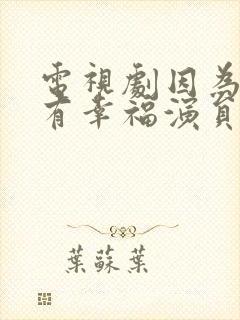 電視劇因為
有幸福演員
葉蘇葉